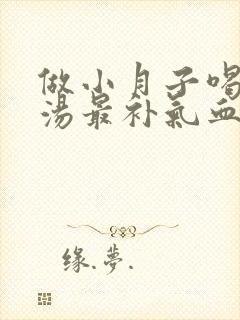 做小月子喝
汤最补氣血
缘.梦.